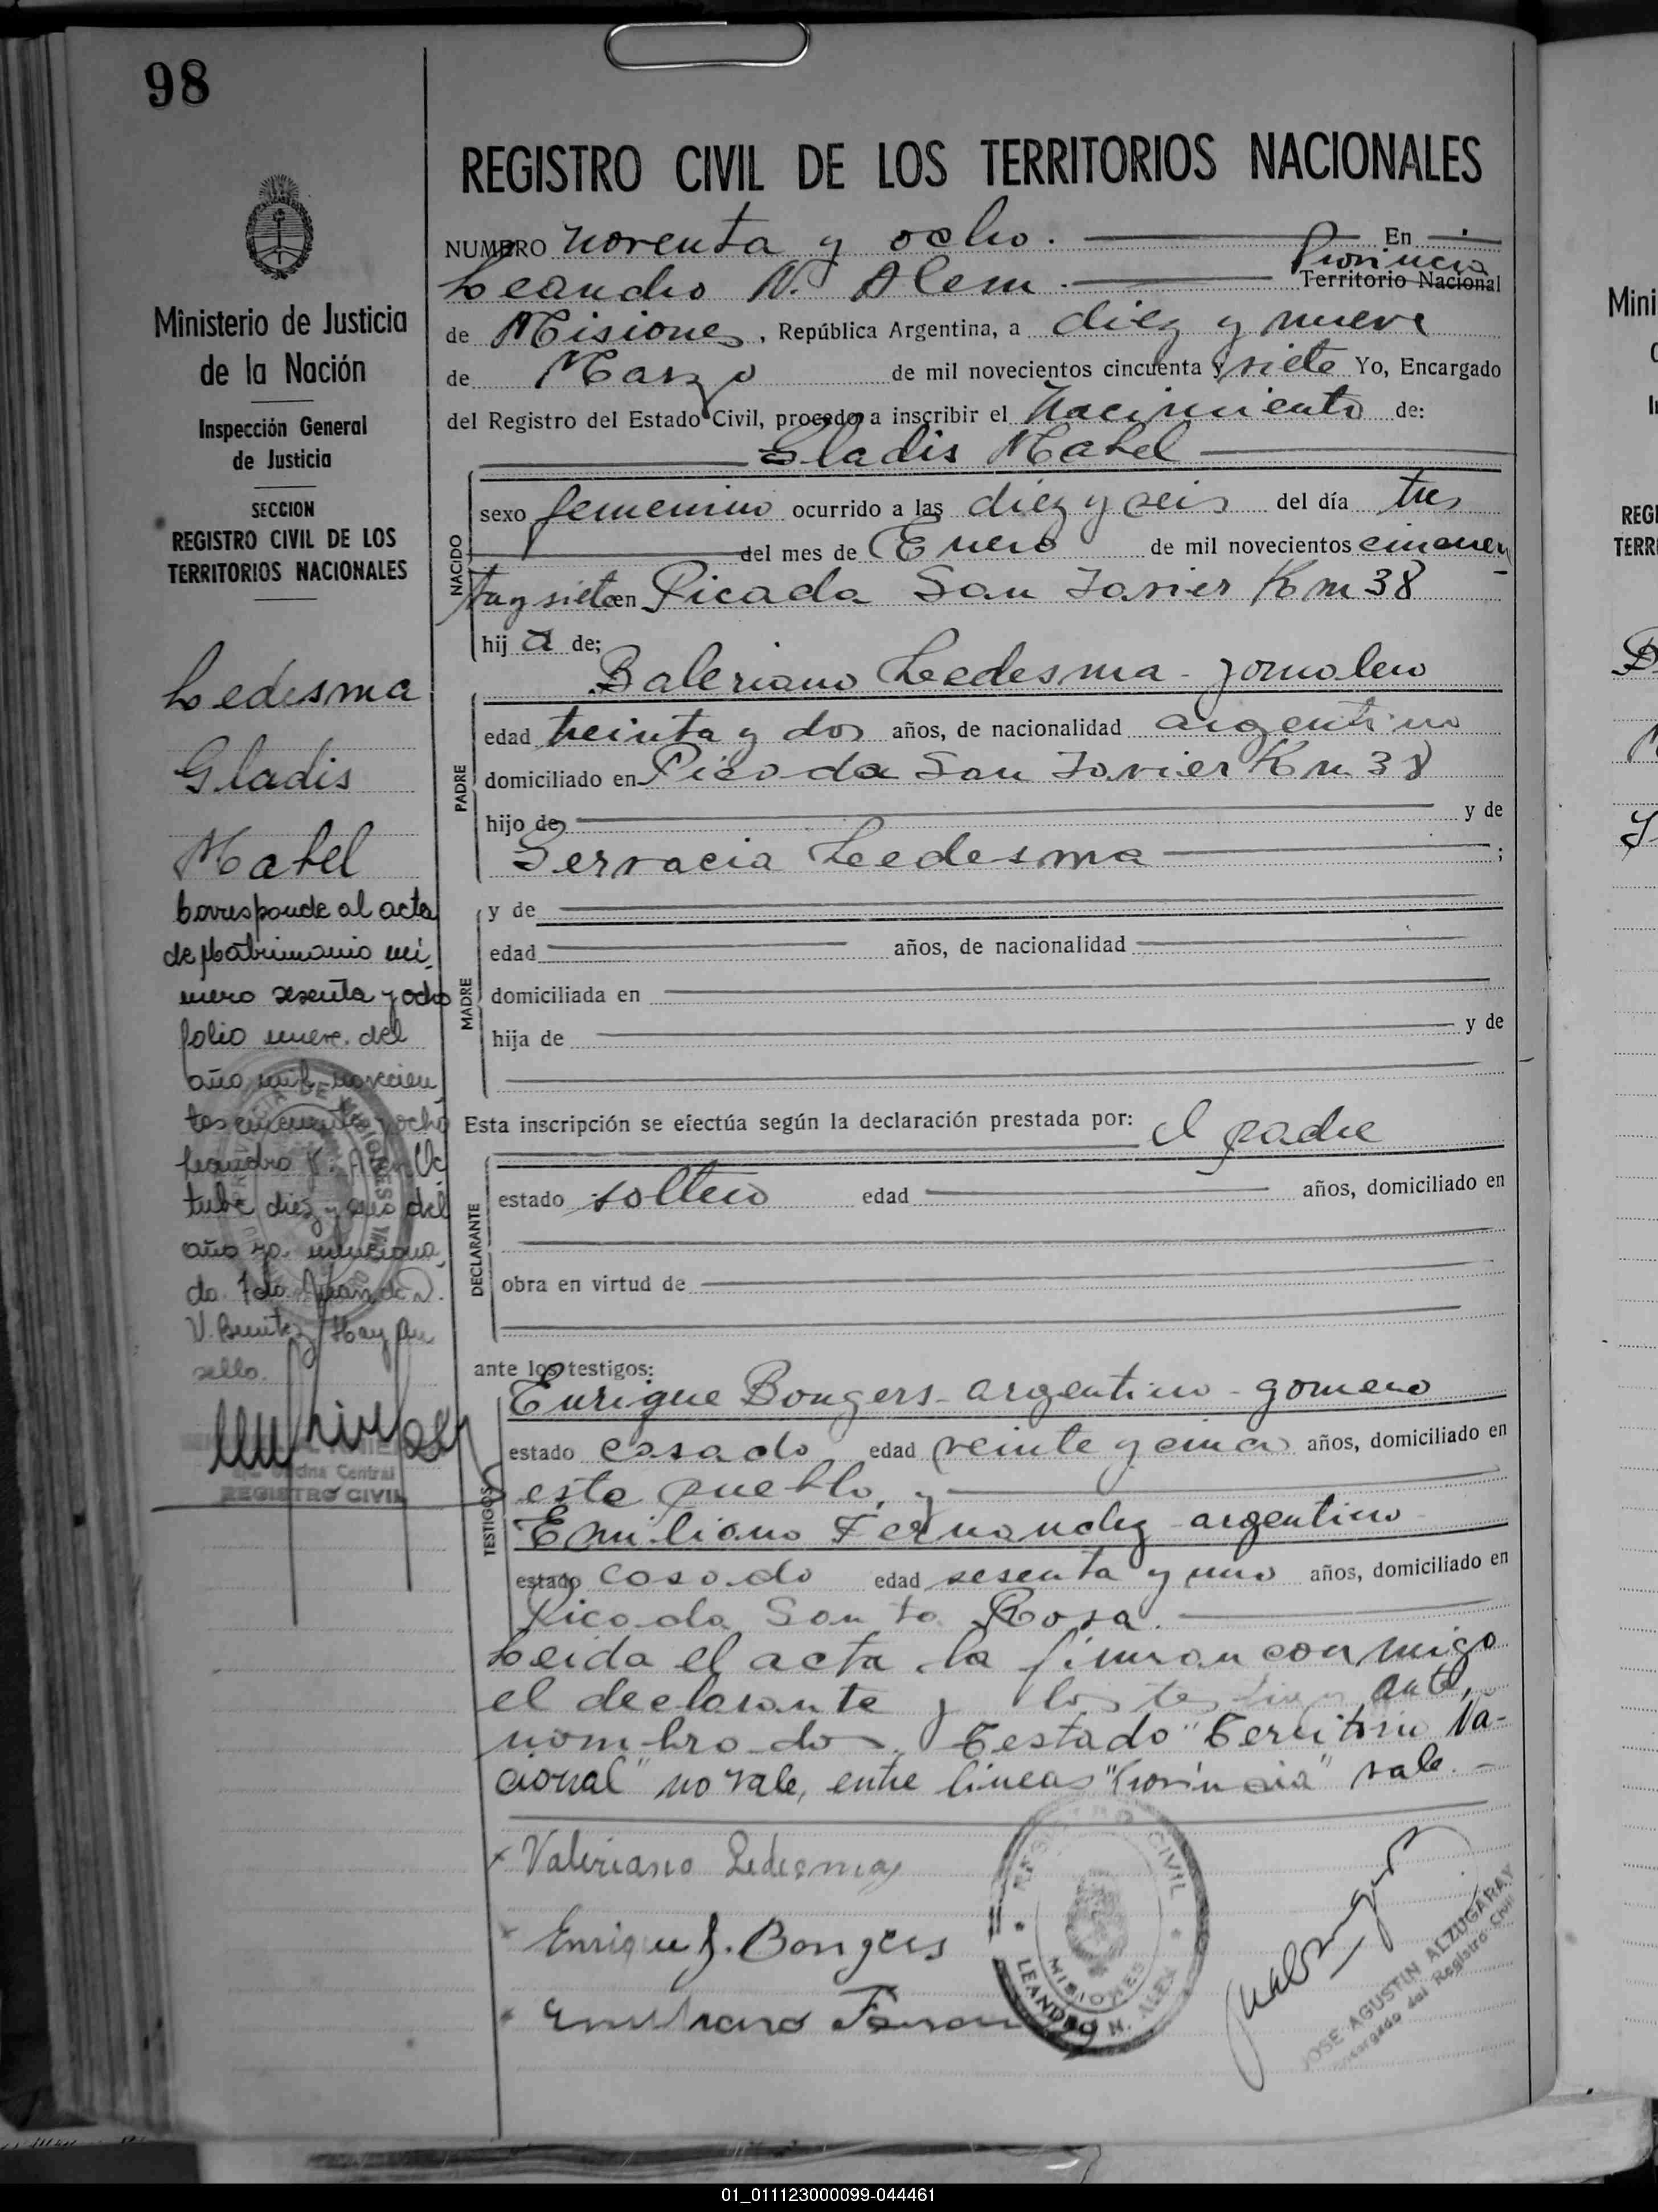 98
REGISTRO CIVIL DE LOS TERRITORIOS NACIONALES
NUMERO noventa y ocho. En
Leandro N. Alem. Provincia
Territorio Nacional
de Misiones, República Argentina, a diez y nueve
de Marzo de mil novecientos cincuenta y siete Yo, Encargado
del Registro del Estado Civil, procedo a inscribir el Nacimiento de:
Gladis Mabel
NACIDO
sexo femenino ocurrido a las diez y seis del día tres
del mes de Enero de mil novecientos cincuen
ta y siete en Picada San Javier Km 38
hij a de;
Baleriano Ledesma - jornalero
PADRE
edad treinta y dos años, de nacionalidad argentino
domiciliado en Picada San Javier Km 38
hijo de y de
Gervacia Ledesma ;
MADRE
y de
edad años, de nacionalidad
domiciliada en
hija de y de
Esta inscripción se efectúa según la declaración prestada por: el padre
DECLARANTE
estado soltero edad años, domiciliado en
obra en virtud de
ante los testigos:
TESTIGOS
Enrique Bongers - argentino - gomero
estado casado edad veinte y cinco años, domiciliado en
este pueblo, y
Emiliano Fernandez argentino
estado casado edad sesenta y uno años, domiciliado en
Picada Santa Rosa.
Leida el acta la firman conmigo
el declarante y los testigos ante
nombrados. Testado "Territorio Na-
cional" no vale, entre lineas "Provincia" vale. -
Valeriano Ledesma
Enrique J. Bongers
Emiliano
REGISTRO CIVIL
MISIONES
LEANDRO N. ALEM
JOSE AGUSTIN ALZUGARAY
Encargado del Registro Civil
Ministerio de Justicia
de la Nación
Inspección General
de Justicia
SECCION
REGISTRO CIVIL DE LOS
TERRITORIOS NACIONALES
Ledesma
Gladis
Mabel
Corresponde al acta
de Matrimonio nú-
mero sesenta y ocho
folio nueve del
año mil novecien
tos cincuenta y ocho
Leandro N. Alem Oc
tubre diez y seis del
año ya menciona
do. Fdo.
V. Benitez Hay un
sello.
Oficina Central
REGISTRO CIVIL
Mini
REGI
TERR
01_011123000099-044461